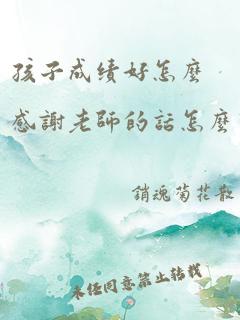 孩子成绩好怎麽
感謝老師的話怎麽
銷魂菊花散
未经同意禁止转载